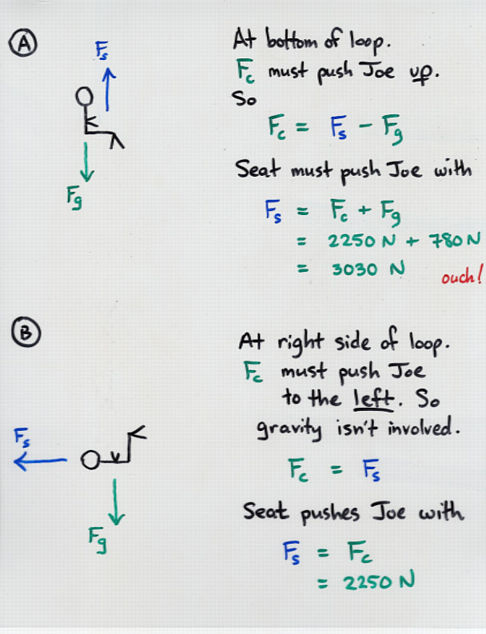 A
At bottom of loop.
Fc must push Joe up.
So
Fs
Fc = Fs - Fg
Fg
Seat must push Joe with
Fs = Fc + Fg
= 2250 N + 780 N
= 3030 N
ouch!
B
At right side of loop.
Fc must push Joe
to the left. So
gravity isn't involved.
Fs
Fc = Fs
Fg
Seat pushes Joe with
Fs = Fc
= 2250 N